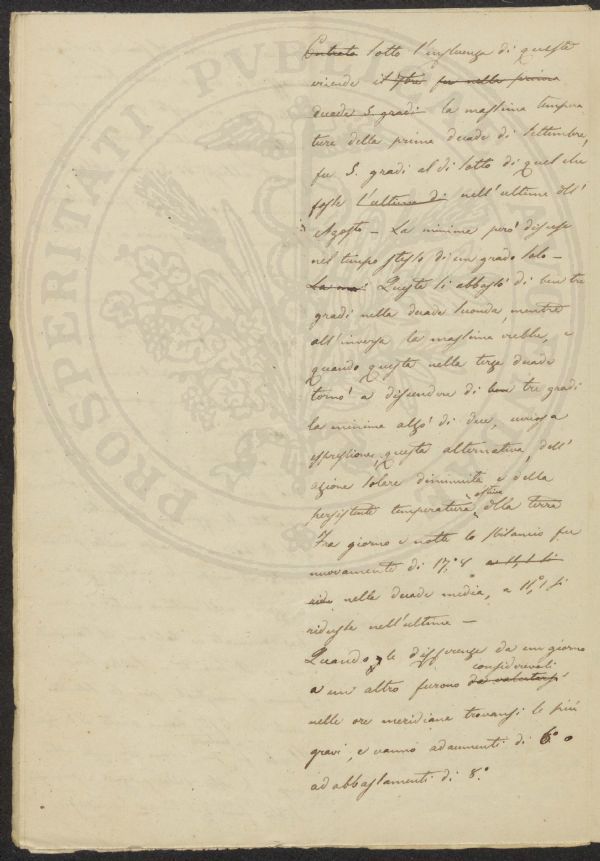 Entrato sotto l'influenza di queste
vicende il 7bre fu nella prima
decade 5. gradi la massima tempera
tura della prima decade di Settembre,
fu 5. gradi al di sotto di quel che
fosse l'ultimo di nell'ultima dell'
Agosto – La minima però discese
nel tempo stesso di un grado solo –
La mas Questa si abbassò di ben tre
gradi nella decade seconda, mentre
all'inversa la massima crebbe, e
quando questa nella terza decade
tornò a discendere di ben tre gradi
la minima alzò di due,
espressione questa alternativa, dell'
azione solare diminuita e della
persistente temperatura estiva della terra
Fra giorno e notte lo sbilancio fu
nuovamente di 17.°8 a 11,1 si
nella decade media, e 11,°1 si
ridusse nell'ultima –
Quando le differenze da un giorno
a un altro furono da valutarsi considerevoli
nelle ore meridiane trovansi le più
gravi, e vanno ad aumenti di 6° o
ad abbassamenti di 8.°
PROSPERITATI PVBLICAE